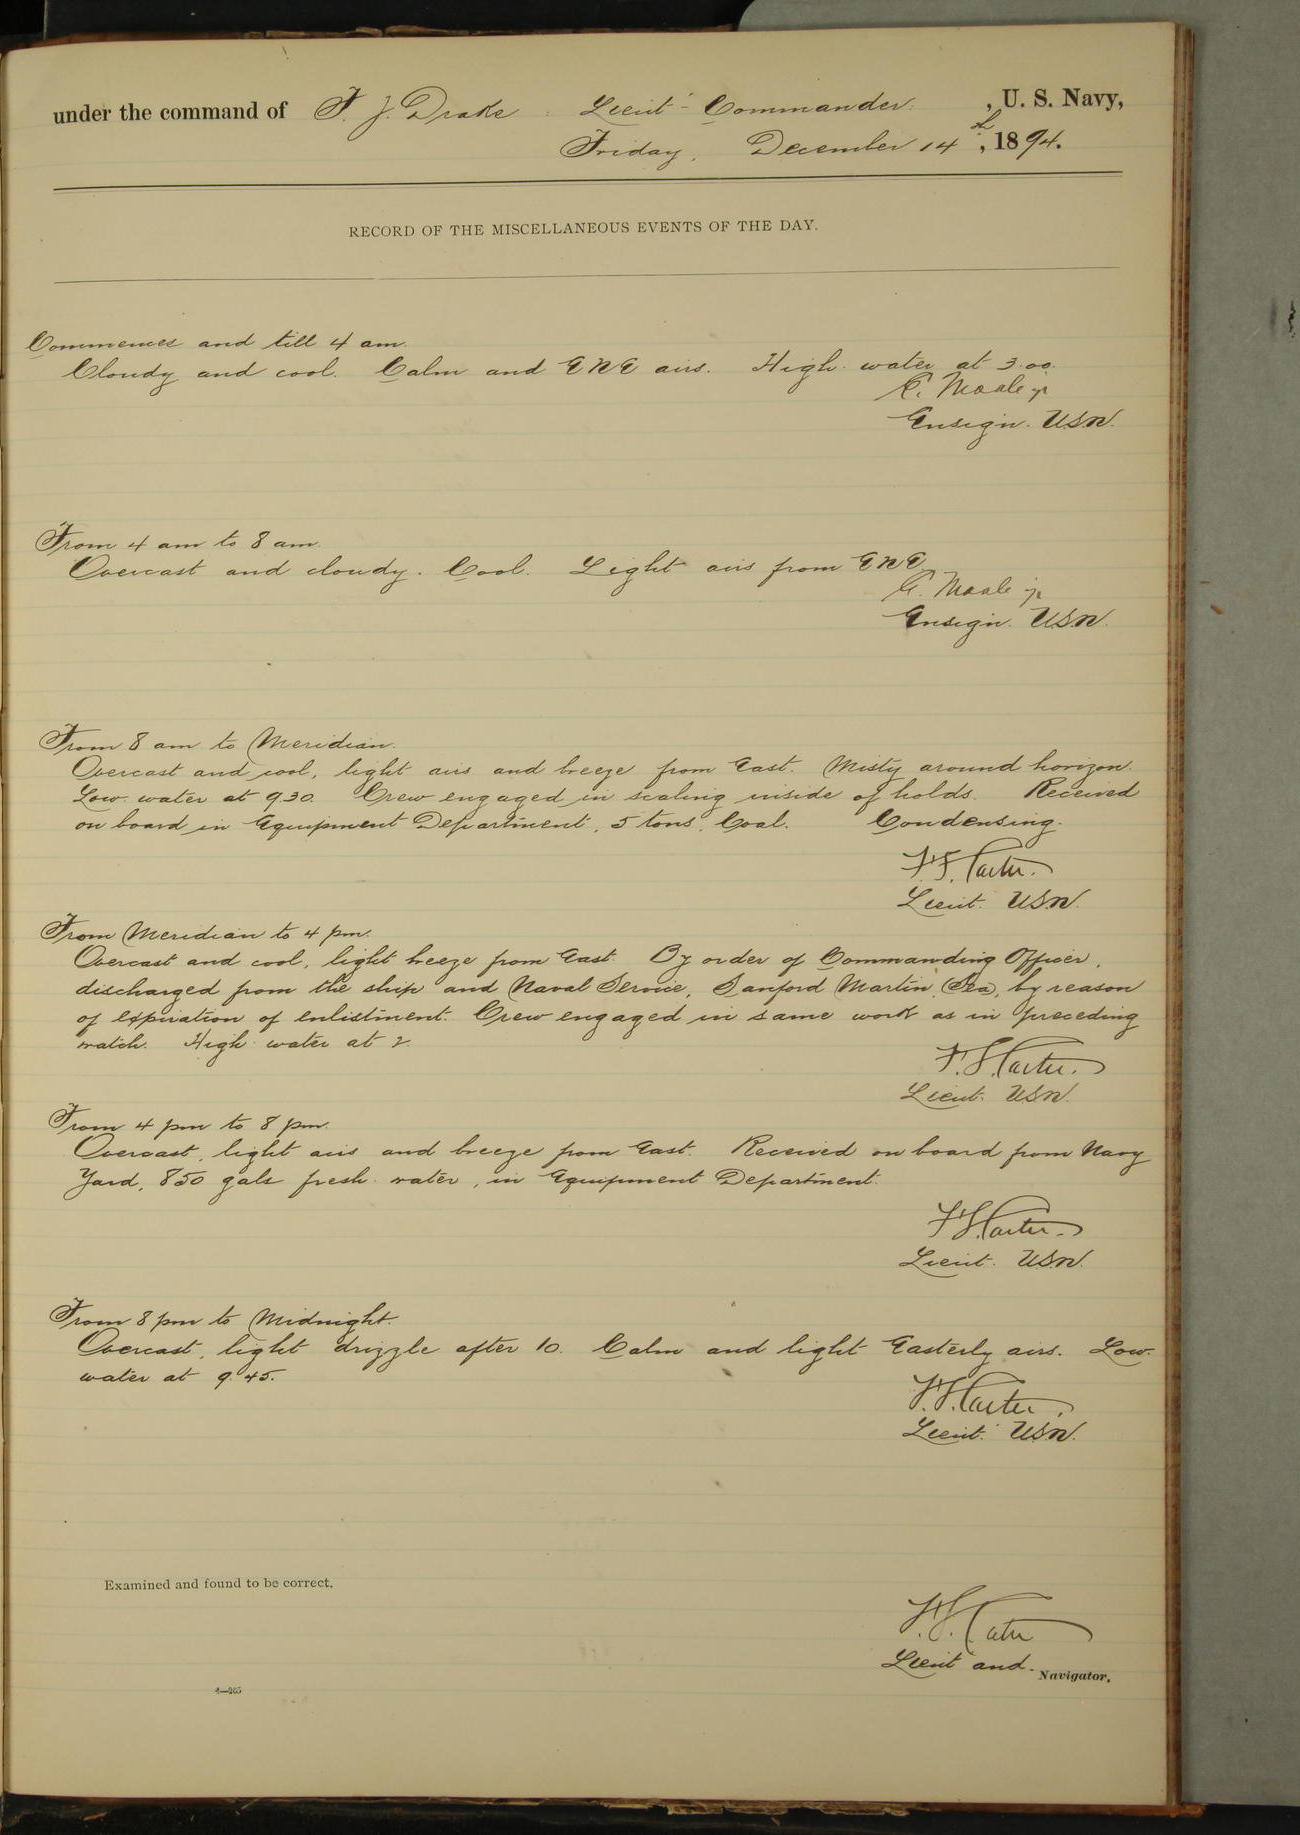 under the command of F. J. Drake Lieut-Commander, U. S. Navy,
Friday, December 14th, 1894.
RECORD OF THE MISCELLANEOUS EVENTS OF THE DAY.
Commences and till 4 am.
Cloudy and cool. Calm and ENE airs. High water at 3.00.
E. Moale jr
Ensign. USN.
From 4 am to 8 am.
Overcast and cloudy. Cool. Light airs from ENE.
E. Moale jr
Ensign. USN.
From 8 am to Meridian.
Overcast and cool, light airs and breeze from East. Misty around horizon.
Low water at 9.30. Crew engaged in scaling inside of holds. Received
on board in Equipment Department, 5 tons, Coal. Condensing.
F. F. Carter.
Lieut. USN.
From Meridian to 4 pm.
Overcast and cool, light breeze from East. By order of Commanding Officer,
discharged from the ship and Naval Service, Sanford Martin (Sea), by reason
of expiration of enlistment. Crew engaged in same work as in preceding
watch. High water at 2.
F. F. Carter.
Lieut. USN.
From 4 pm to 8 pm.
Overcast, light airs and breeze from East. Received on board from Navy
Yard, 850 gals fresh water, in Equipment Department.
F. F. Carter.
Lieut. USN.
From 8 pm to Midnight.
Overcast, light drizzle after 10. Calm and light Easterly airs. Low
water at 9.45.
F. F. Carter.
Lieut. USN.
Examined and found to be correct.
F. F. Carter
Lieut and Navigator.